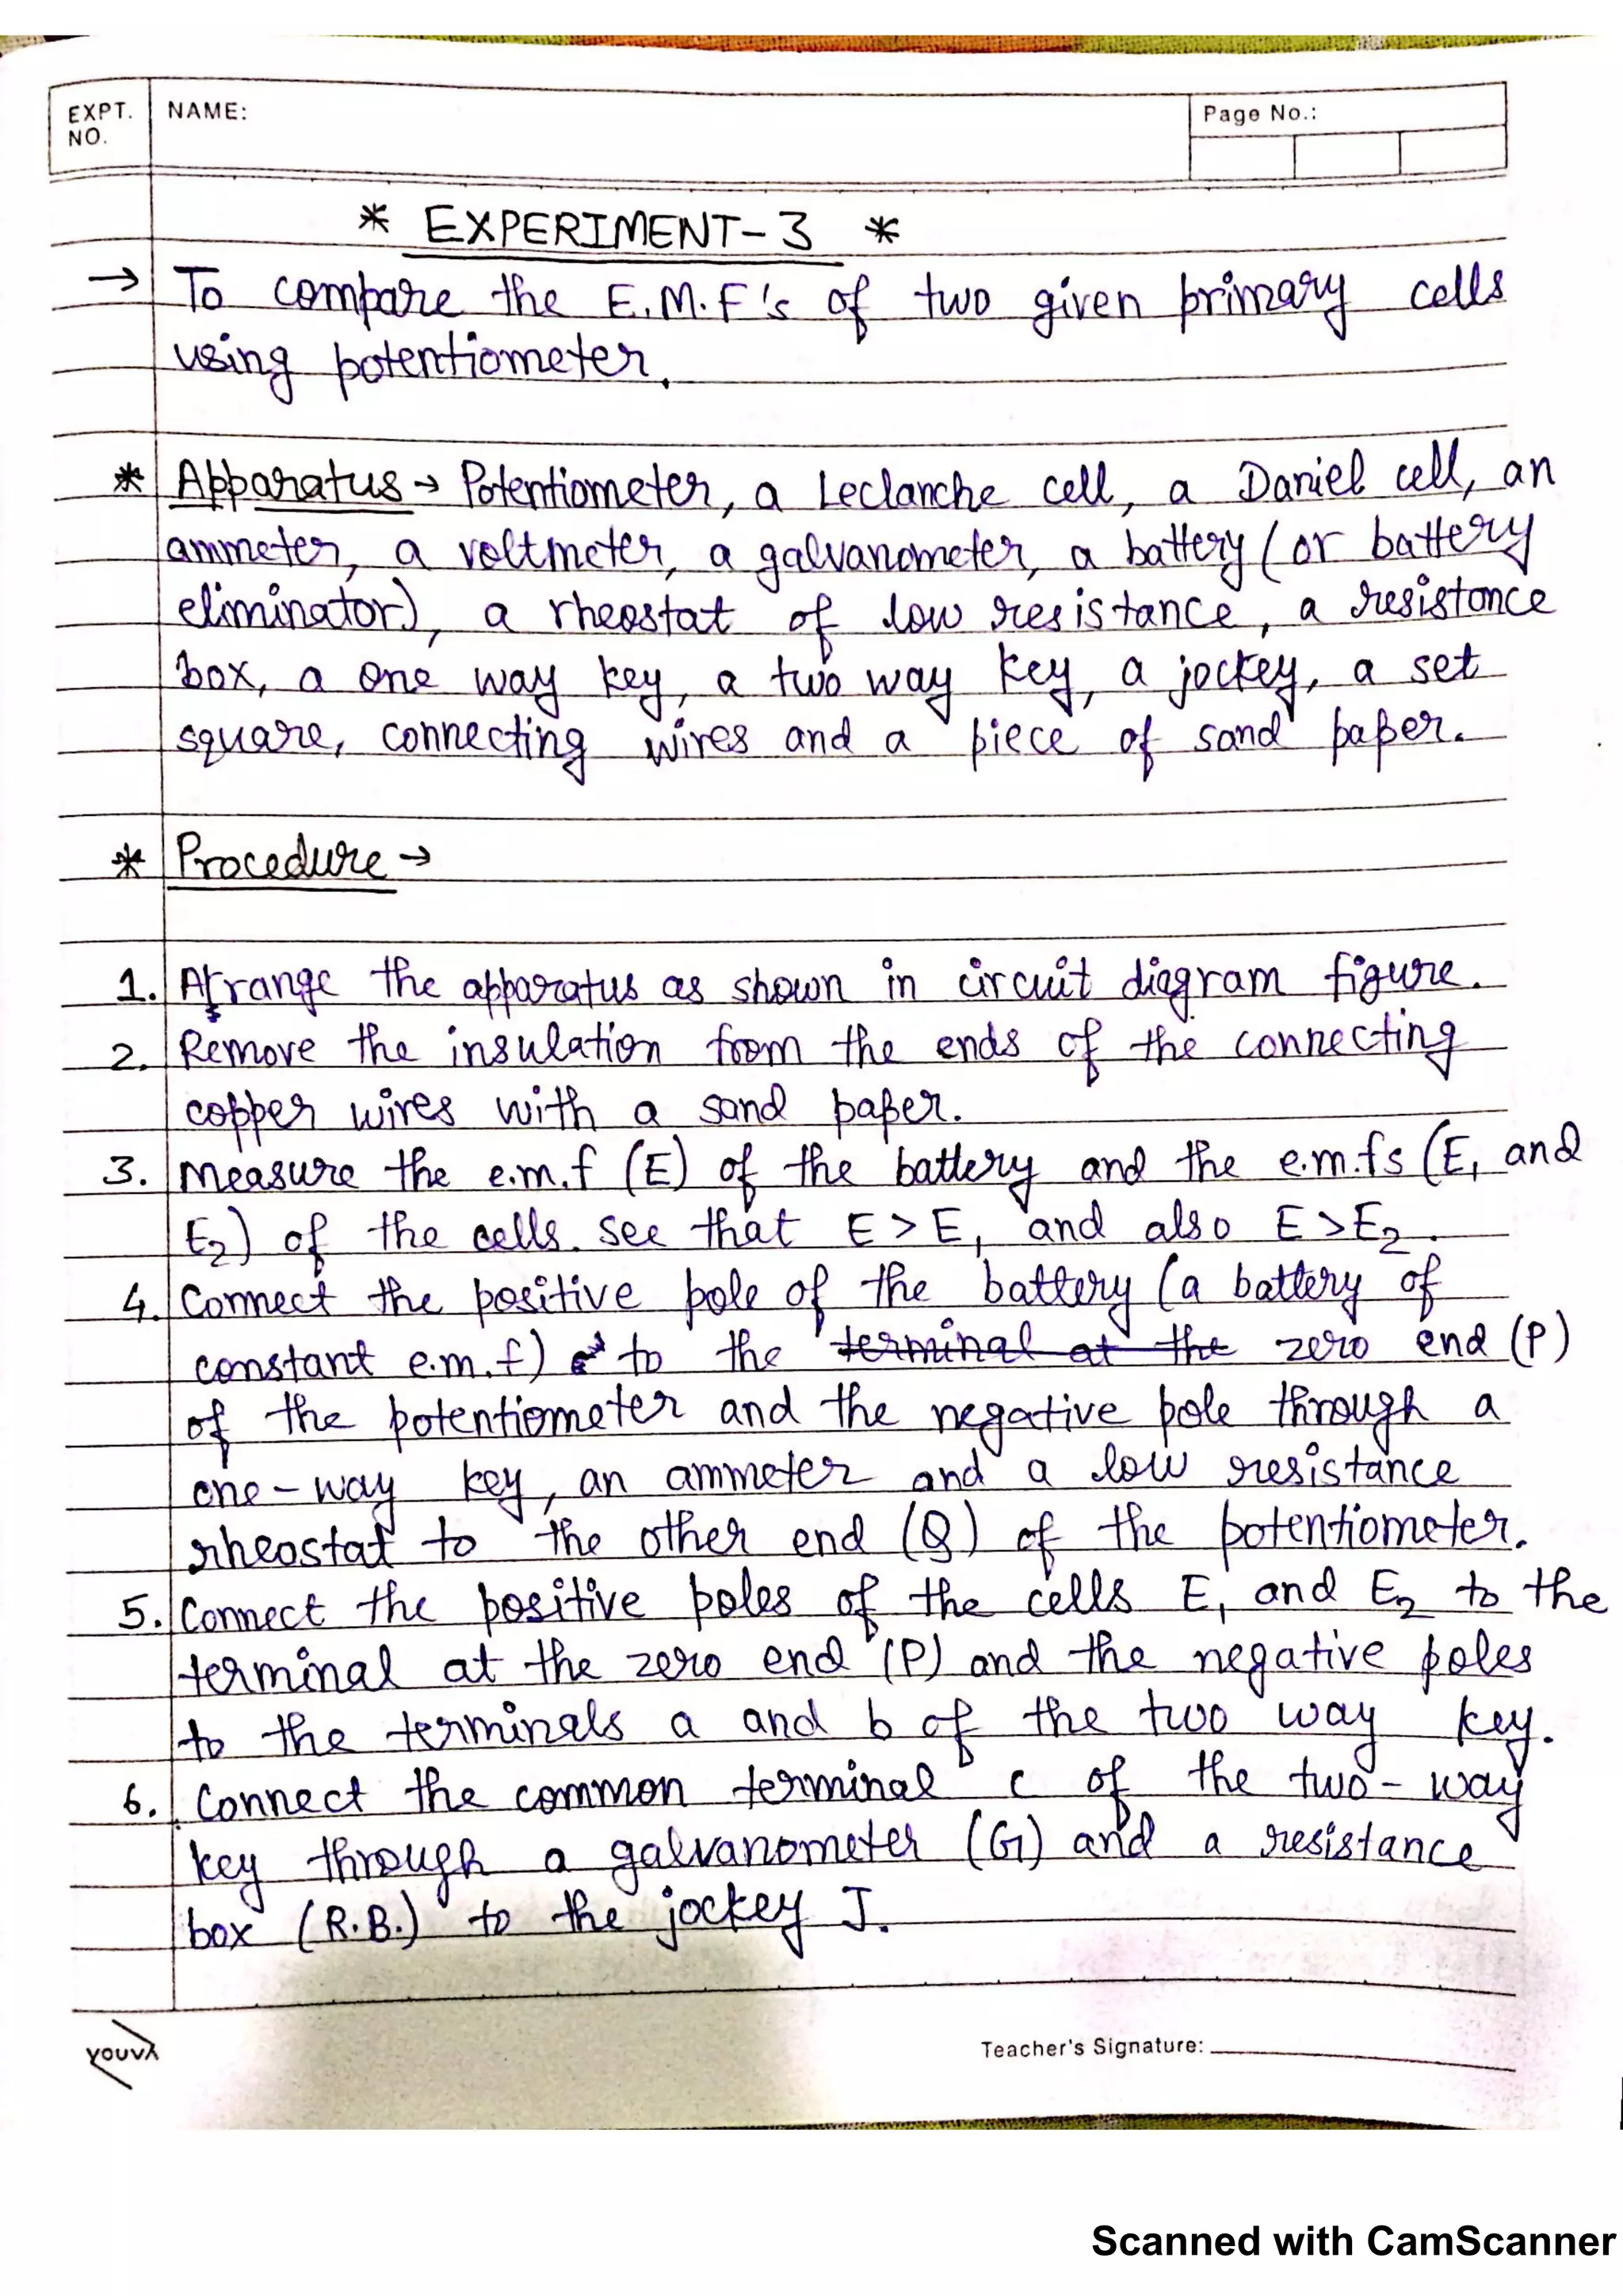 EXPT. NO.
NAME:
Page No.:
* EXPERIMENT-3 *
→ To compare the E.M.F's of two given primary cells
using potentiometer.
* Apparatus → Potentiometer, a Leclanche cell, a Daniel cell, an
ammeter, a voltmeter, a galvanometer, a battery (or battery
eliminator), a rheostat of low resistance, a resistance
box, a one way key, a two way key, a jockey, a set
square, connecting wires and a piece of sand paper.
* Procedure →
1. Arrange the apparatus as shown in circuit diagram figure.
2. Remove the insulation from the ends of the connecting
copper wires with a sand paper.
3. Measure the e.m.f (E) of the battery and the e.m.fs (E1 and
E2) of the cells. See that E > E1 and also E > E2.
4. Connect the positive pole of the battery (a battery of
constant e.m.f) to the terminal at the zero end (P)
of the potentiometer and the negative pole through a
one-way key, an ammeter and a low resistance
rheostat to the other end (Q) of the potentiometer.
5. Connect the positive poles of the cells E1 and E2 to the
terminal at the zero end (P) and the negative poles
to the terminals a and b of the two way key.
6. Connect the common terminal c of the two-way
key through a galvanometer (G) and a resistance
box (R.B.) to the jockey J.
youva
Teacher's Signature:
Scanned with CamScanner